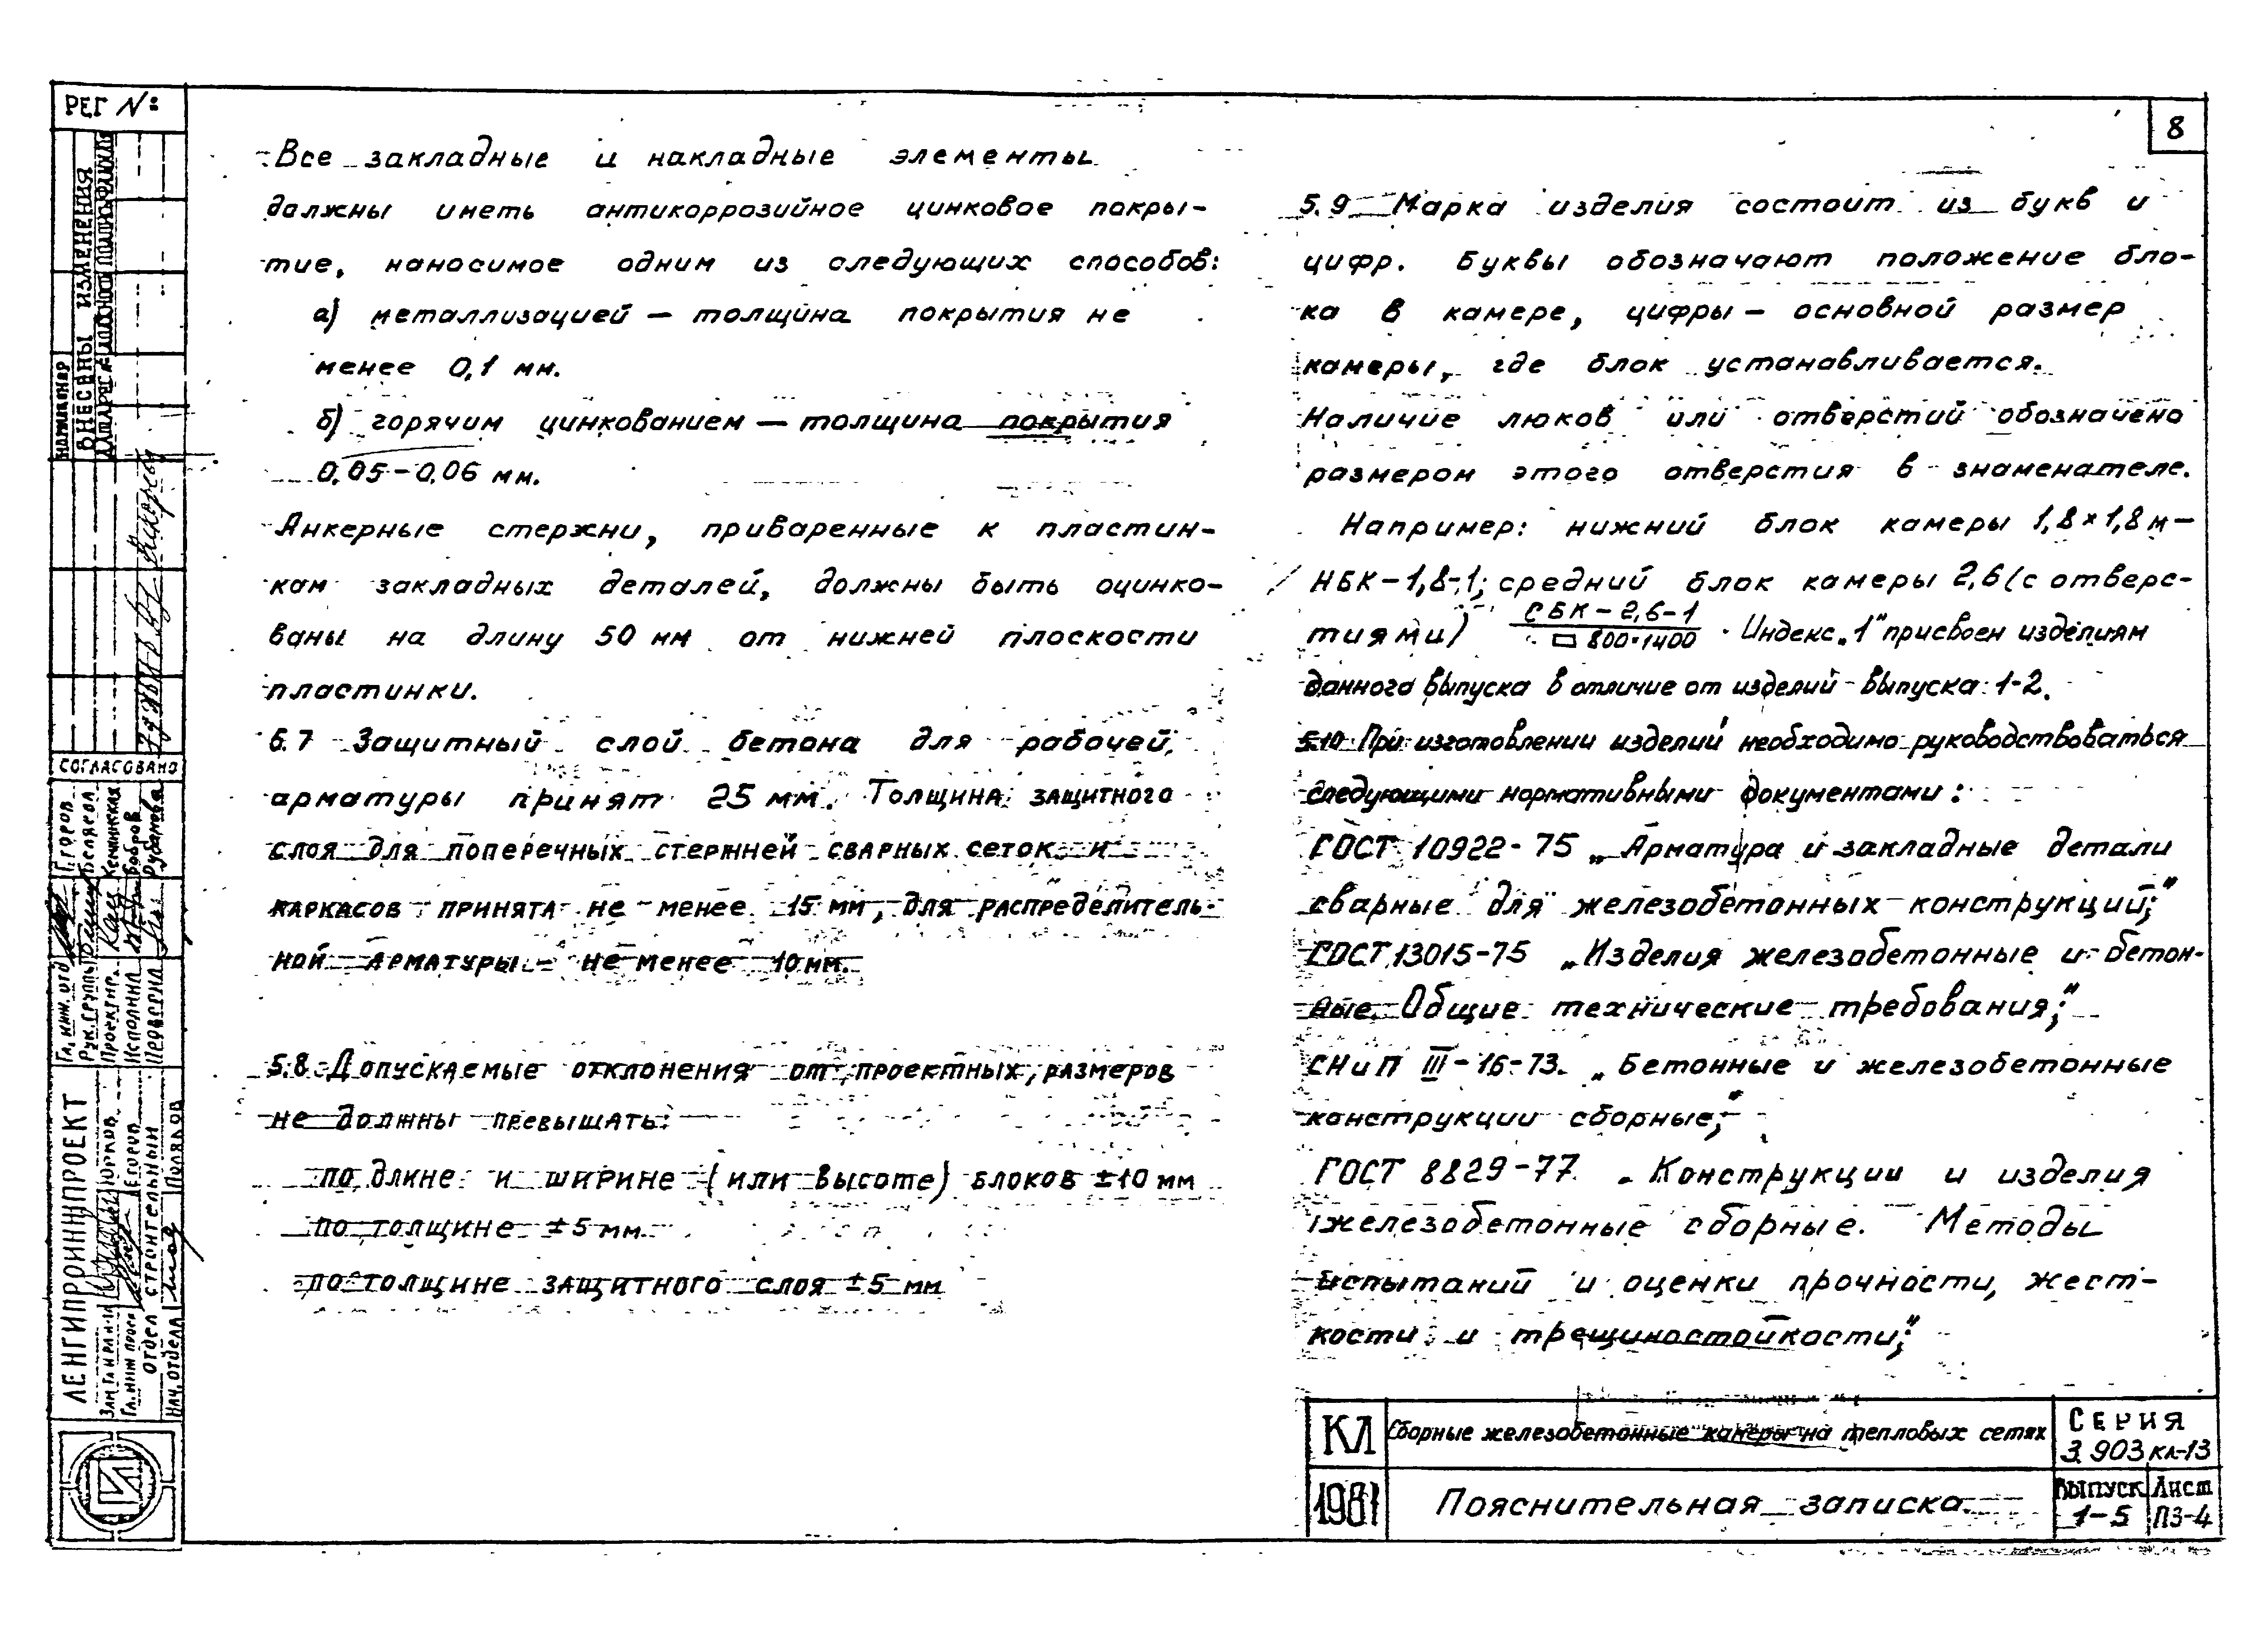 РЕГ №:
8
Все закладные и накладные элементы
должны иметь антикоррозийное цинковое покры-
тие, наносимое одним из следующих способов:
а) металлизацией — толщина покрытия не
менее 0,1 мм.
б) горячим цинкованием — толщина покрытия
0,05-0,06 мм.
Анкерные стержни, приваренные к пластин-
кам закладных деталей, должны быть оцинко-
ваны на длину 50 мм от нижней плоскости
пластинки.
5.7 Защитный слой бетона для рабочей
арматуры принят 25 мм. Толщина защитного
слоя для поперечных стержней сварных сеток и
каркасов принята не менее 15 мм, для распределитель-
ной арматуры - не менее 10 мм.
5.8 Допускаемые отклонения от проектных размеров
не должны превышать:
по длине и ширине (или высоте) блоков ±10 мм
по толщине ±5 мм
по толщине защитного слоя ±5 мм
5.9 Марка изделия состоит из букв и
цифр. Буквы обозначают положение бло-
ка в камере, цифры — основной размер
камеры, где блок устанавливается.
Наличие люков или отверстий обозначено
размером этого отверстия в знаменателе.
Например: нижний блок камеры 1,8×1,8 м —
НБК-1,8-1; средний блок камеры 2,6 (с отверс-
тиями) СБК-2,6-1 / □ 800×1400 . Индекс „1" присвоен изделиям
данного выпуска в отличие от изделий выпуска 1-2.
5.10 При изготовлении изделий необходимо руководствоваться
следующими нормативными документами:
ГОСТ 10922-75 „Арматура и закладные детали
сварные для железобетонных конструкций";
ГОСТ 13015-75 „Изделия железобетонные и бетон-
ные. Общие технические требования";
СНиП III-16-73. „Бетонные и железобетонные
конструкции сборные";
ГОСТ 8829-77 „Конструкции и изделия
железобетонные сборные. Методы
испытаний и оценки прочности, жест-
кости и трещиностойкости";
КЛ
Сборные железобетонные камеры на тепловых сетях
Серия
3.903 кл-13
1981
Пояснительная записка.
Выпуск
1-5
Лист
ПЗ-4
ВНЕСЕНЫ ИЗМЕНЕНИЯ
СОГЛАСОВАНО
Гл. инж. отд Егоров
Рук. группы Беляева
Проектир.
Исполнил Бобров
Проверил Рубанова
ЛЕНГИПРОИНЖПРОЕКТ
Зам. гл. инж. ин-та Юрков
Гл. инж. проек Егоров
отдел строительный
Нач. отдела Поляков